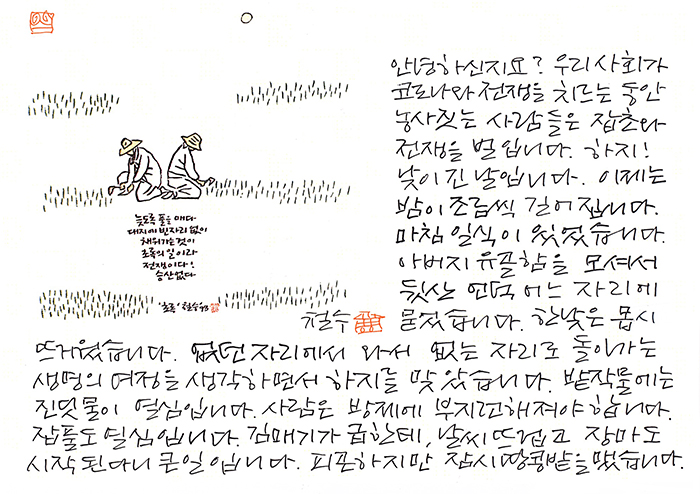 안녕하신지요? 우리 사회가
코로나와 전쟁을 치르는 동안
농사짓는 사람들은 잡초와
전쟁을 벌입니다. 하지!
낮이 긴 날입니다. 이제는
밤이 조금씩 길어집니다.
마침 일식이 있었습니다.
아버지 유골함을 모셔서
뒷산 언덕 어느 자리에
묻었습니다. 한낮은 몹시
뜨거웠습니다. 없던 자리에서 와서 없는 자리로 돌아가는
생명의 여정을 생각하면서 하지를 맞았습니다. 밭작물에는
진딧물이 열심입니다. 사람은 방제에 부지런해져야 합니다.
잡풀도 열심입니다. 김매기가 급한데, 날씨 뜨겁고 장마도
시작된다니 큰일입니다. 피곤하지만 잠시 땅콩밭을 맸습니다.
늦도록 풀을 매다
대지에 빈자리 없이
채워가는 것이
초록의 일이라
전쟁이다!
승산 없다
'초록' 철수
철수